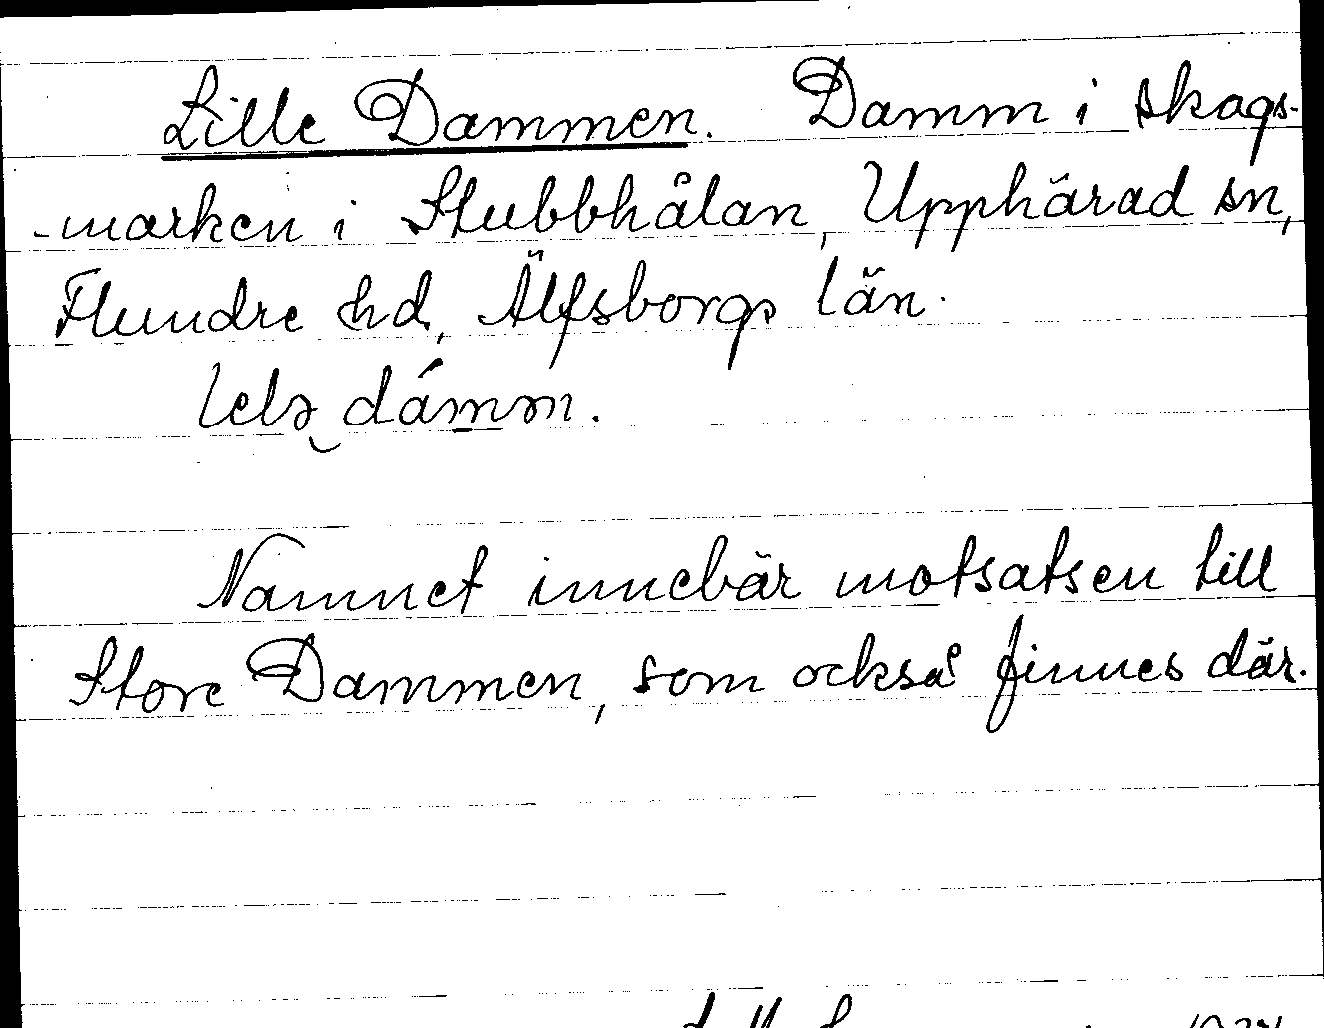 Lille Dammen. Damm i skogs-
-marken i Stubbhålan, Upphärad sn,
Flundre hd, Älfsborgs län.
dámm.
Namnet innebär motsatsen till
Store Dammen, som också finnes där.